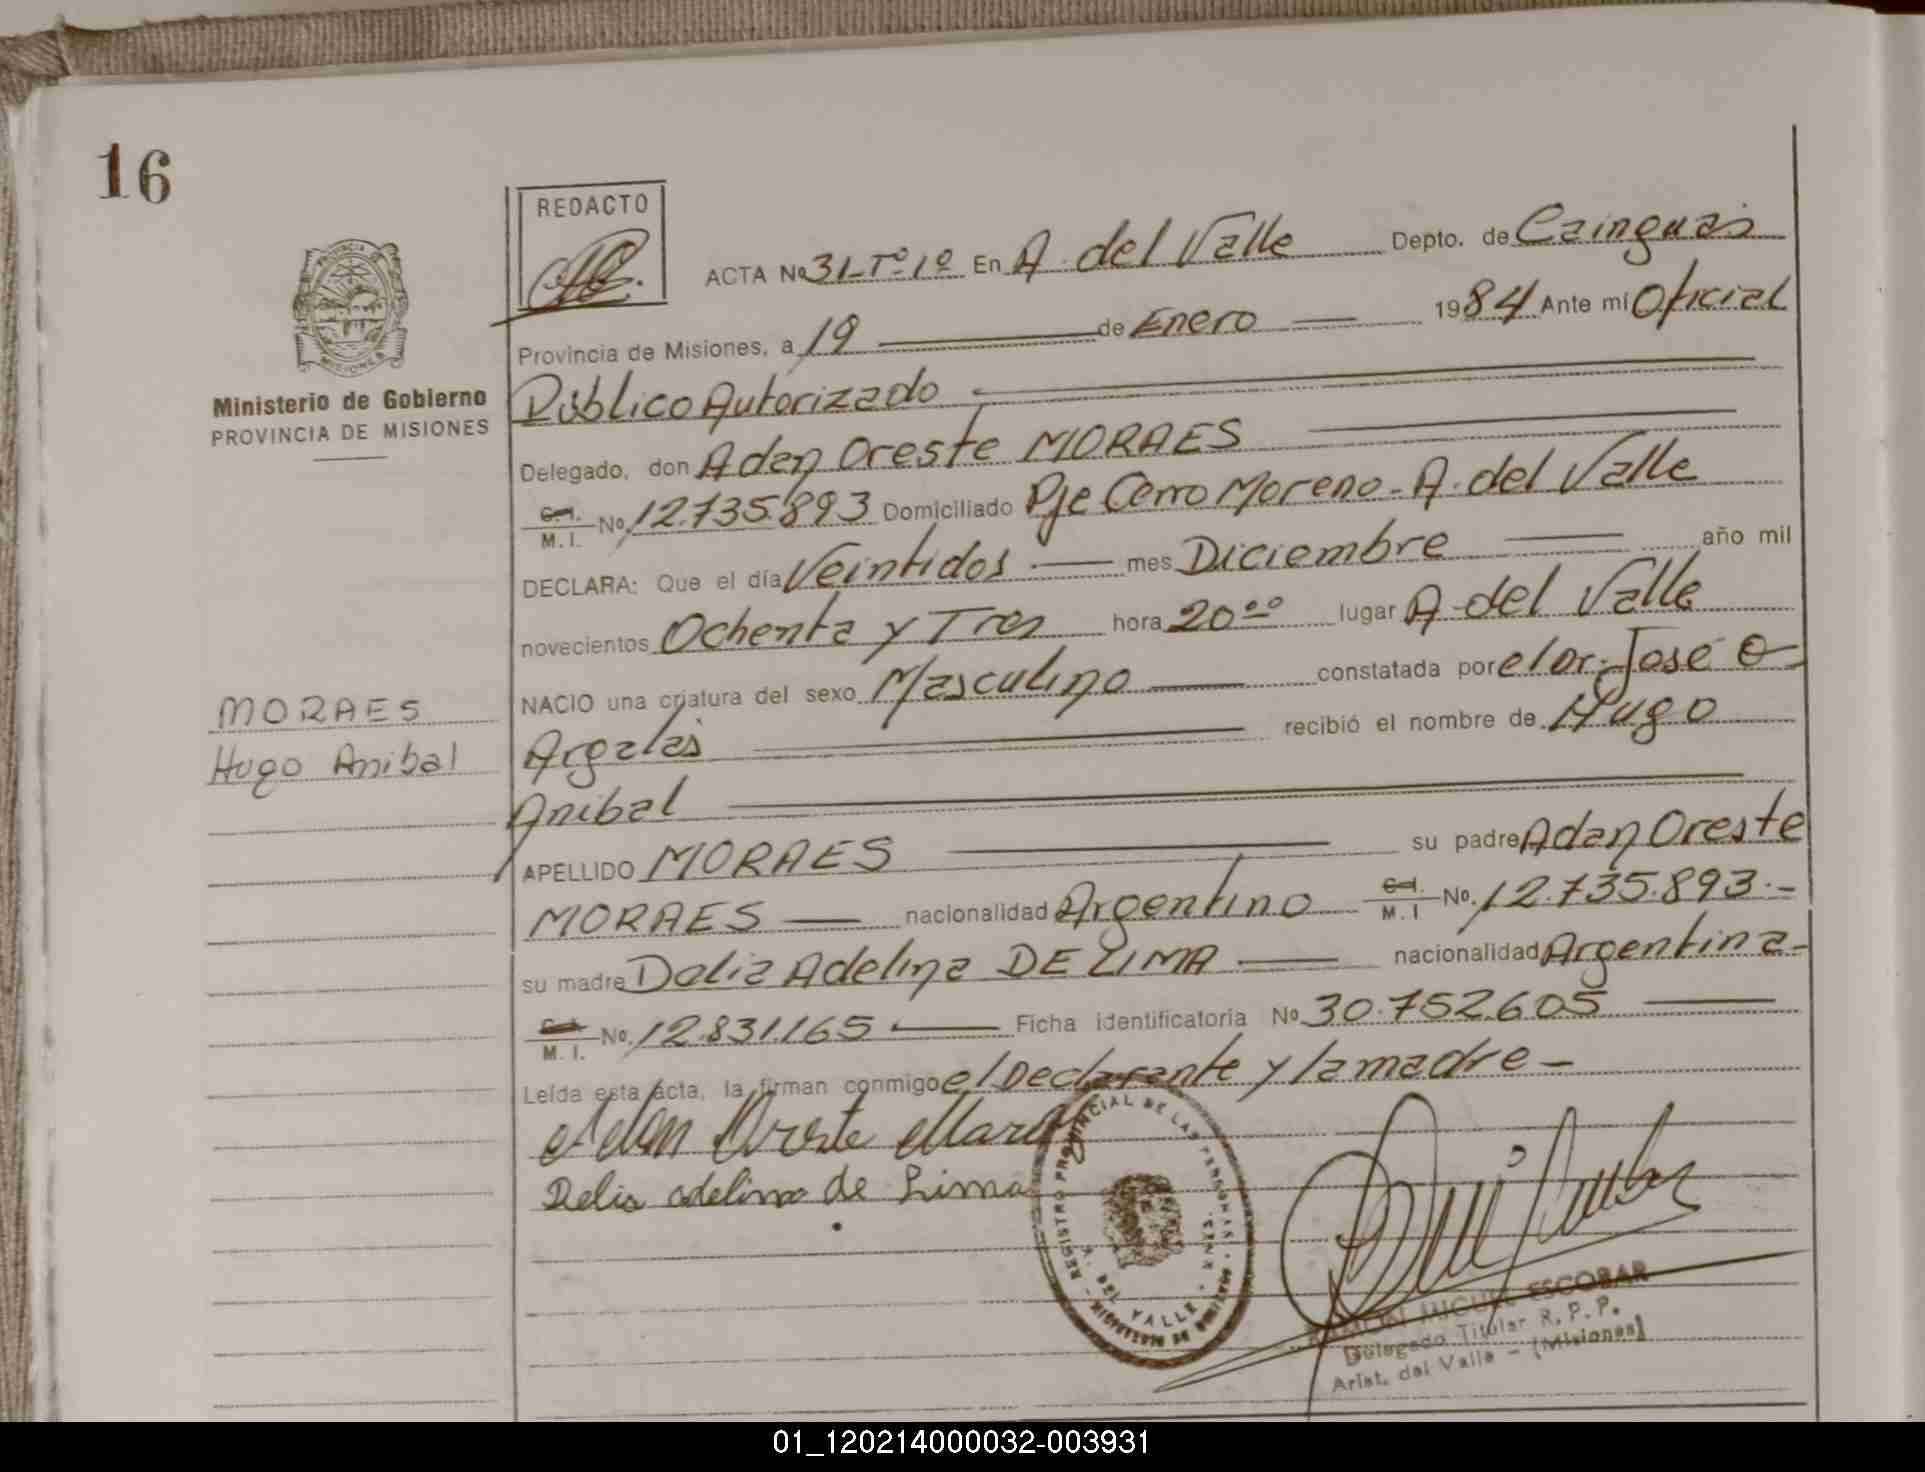 16
REDACTO
PROVINCIA
MISIONES
Ministerio de Gobierno
PROVINCIA DE MISIONES
ACTA No 31-Tº-1º En A. del Valle Depto. de Cainguás
Provincia de Misiones, a 19 de Enero 1984 Ante mi Oficial
Público Autorizado
Delegado, don Adan Oreste MORAES
C.I. M.I. No. 12.735.893 Domiciliado Pje Cerro Moreno - A. del Valle
DECLARA: Que el día Veintidos mes Diciembre año mil
novecientos Ochenta y Tres hora 20ºº lugar A. del Valle
NACIO una criatura del sexo Masculino constatada por el Dr. José O
Argalas recibió el nombre de Hugo
Anibal
MORAES
Hugo Anibal
APELLIDO MORAES su padre Adan Oreste
MORAES nacionalidad Argentino C.I. M.I No. 12.735.893.-
su madre Delia Adelina DE LIMA nacionalidad Argentina-
C.I. M.I. No. 12.831.165 Ficha identificatoria No 30.752.605
Leída esta acta, la firman conmigo el Declarante y la madre -
Adan Oreste Moraes
Delia adelina de Lima
REGISTRO PROVINCIAL DE LAS PERSONAS
A. DEL VALLE
RAMON MIGUEL ESCOBAR
Delegado Titular R.P.P.
Arist. del Valle - (Misiones)
01_120214000032-003931